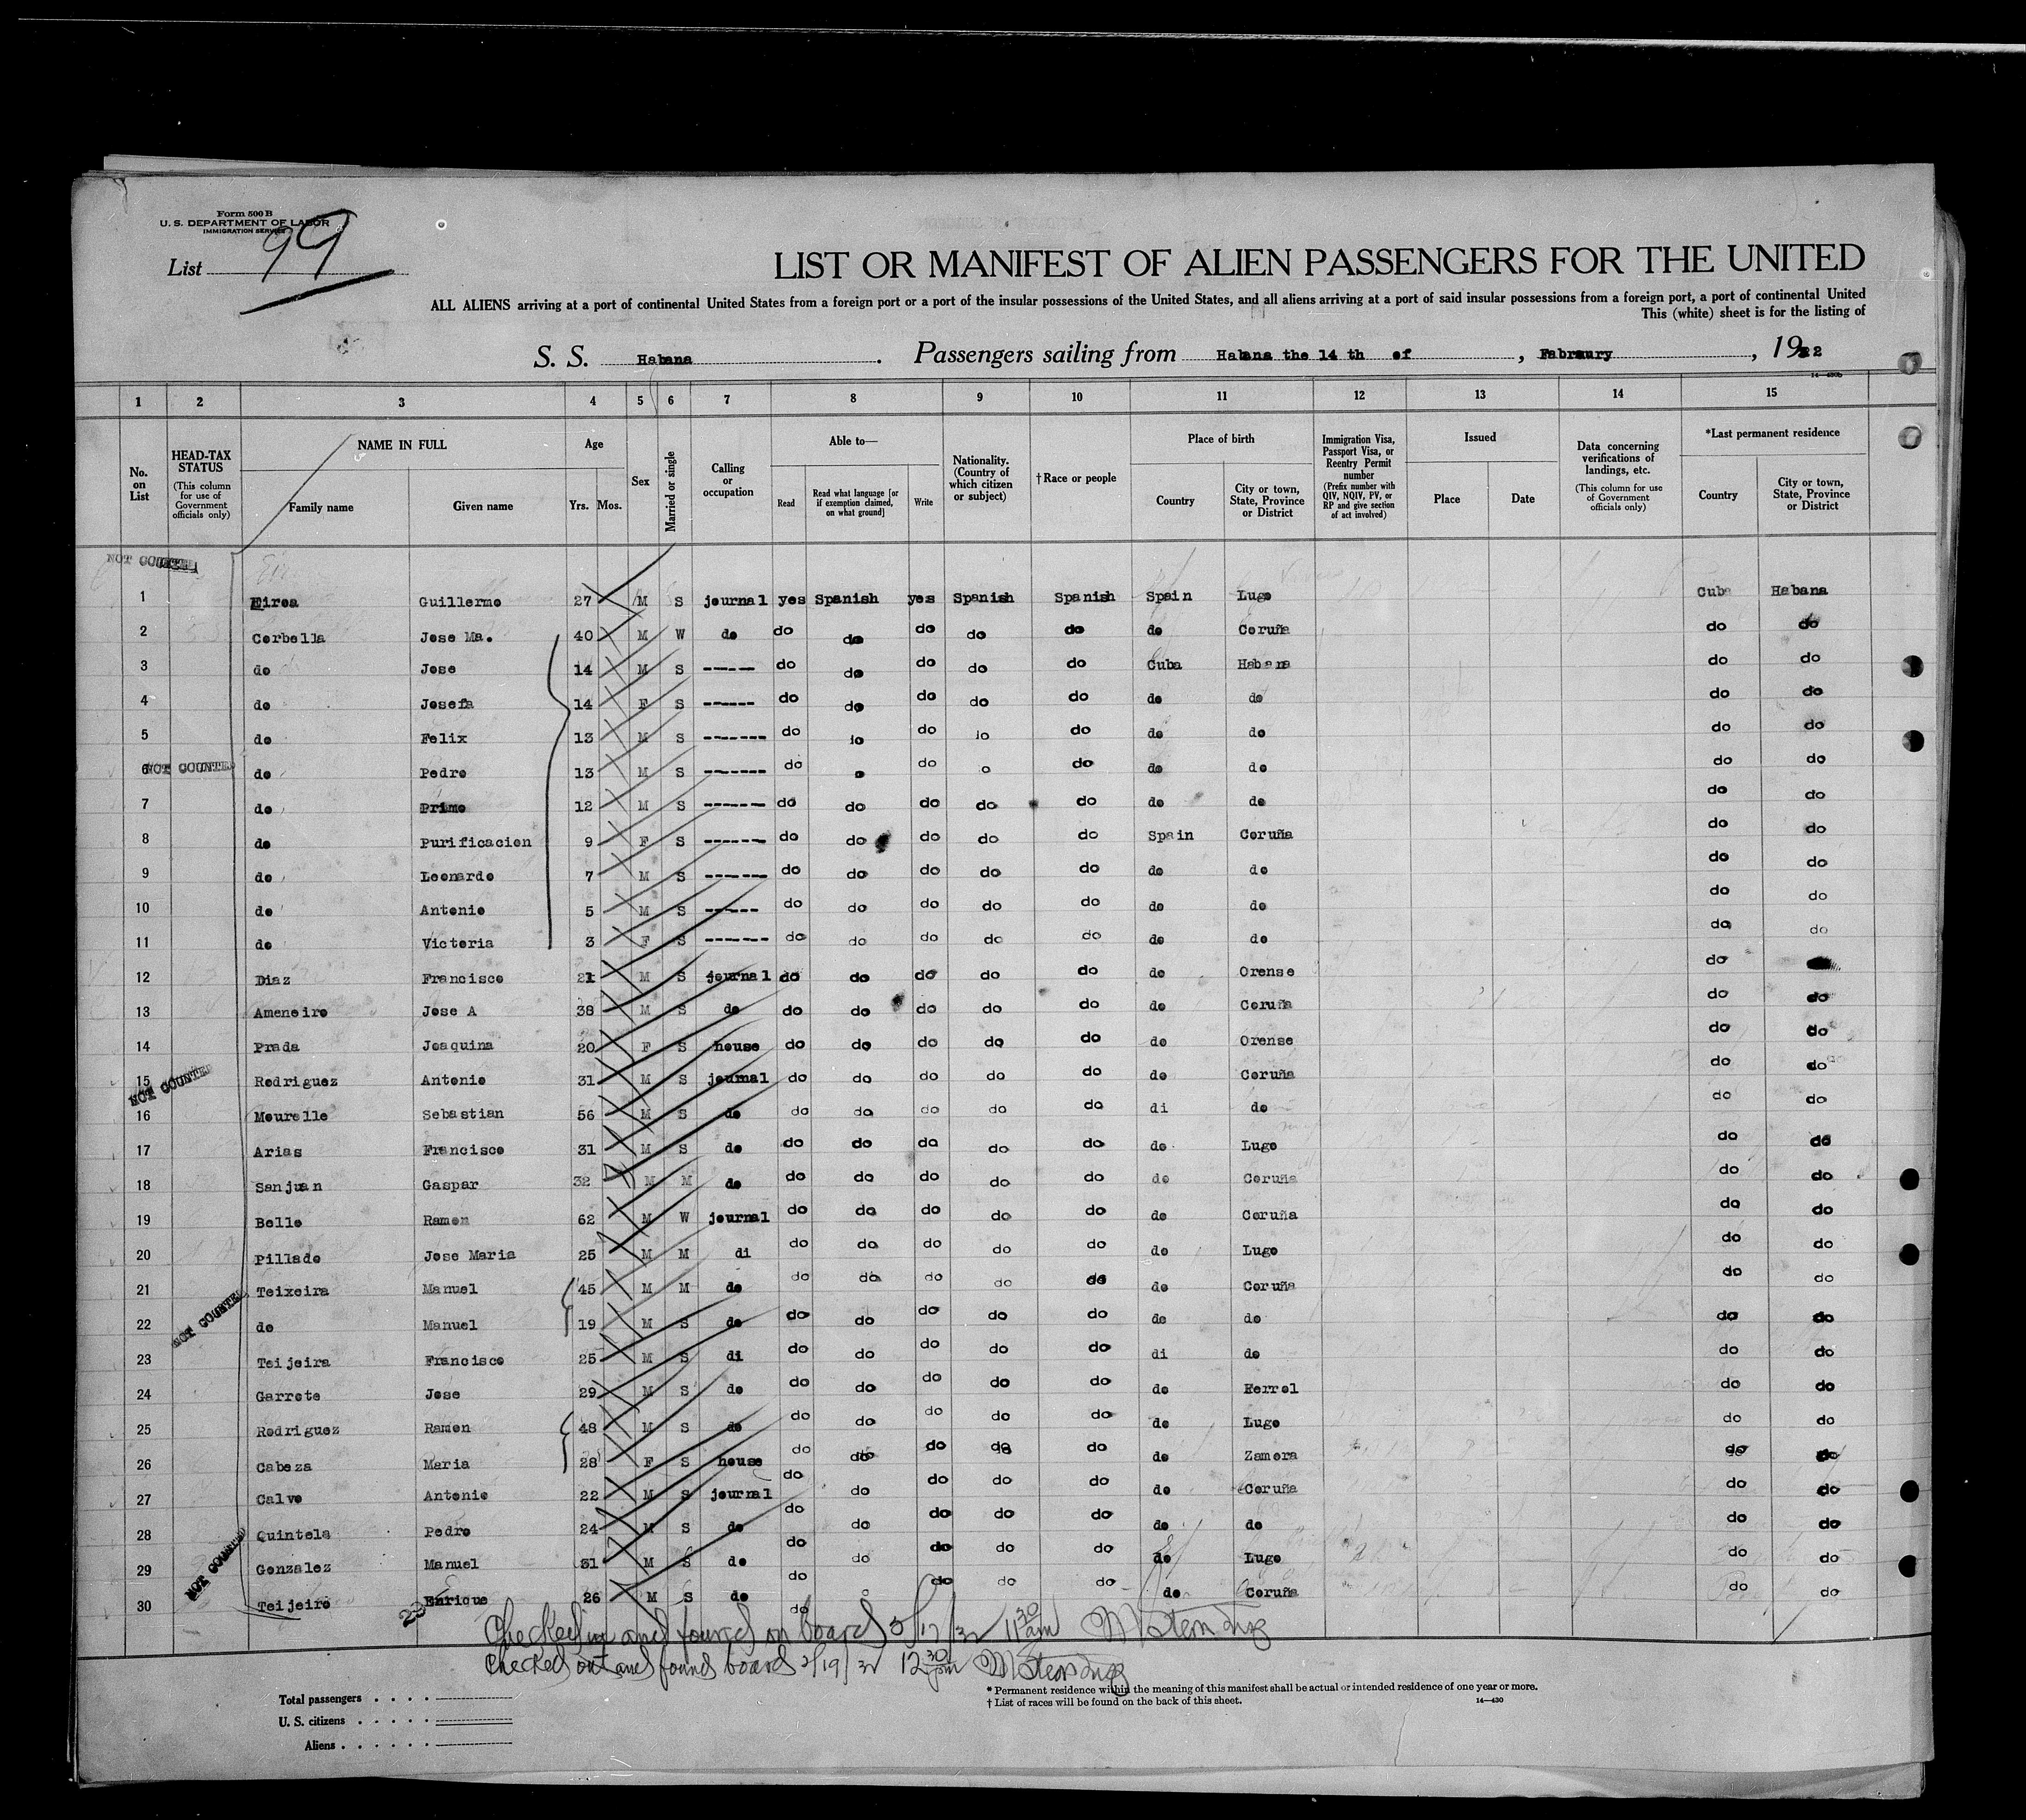 Form 500 B
U. S. DEPARTMENT OF LABOR
IMMIGRATION SERVICE
List 99
LIST OR MANIFEST OF ALIEN PASSENGERS FOR THE UNITED
ALL ALIENS arriving at a port of continental United States from a foreign port or a port of the insular possessions of the United States, and all aliens arriving at a port of said insular possessions from a foreign port, a port of continental United
This (white) sheet is for the listing of
S. S. Habana. Passengers sailing from Habana the 14 th of, Fabraury, 19
14—430b
1 2 3 4 5 6 7 8 9 10 11 12 13 14 15
No. on List
HEAD-TAX STATUS (This column for use of Government officials only)
NAME IN FULL Family name Given name
Age Yrs. Mos.
Sex
Married or single
Calling or occupation
Able to— Read Read what language [or if exemption claimed, on what ground] Write
Nationality. (Country of which citizen or subject)
†Race or people
Place of birth Country City or town, State, Province or District
Immigration Visa, Passport Visa, or Reentry Permit number (Prefix number with QIV, NQIV, PV, or RP and give section of act involved)
Issued Place Date
Data concerning verifications of landings, etc. (This column for use of Government officials only)
*Last permanent residence Country City or town, State, Province or District
NOT COUNTED
1 Eirea Guillermo 27 M S journal yes Spanish yes Spanish Spanish Spain Lugo Cuba Habana
2 Corbella Jose Ma. 40 M W do do do do do do do Coruña do do
3 do Jose 14 M S ----- do do do do do Cuba Habana do do
4 do Josefa 14 F S ------ do do do do do do do do do
5 do Felix 13 M S ------- do io do io do do do do do
6 NOT COUNTED do Pedro 13 M S ------- do o do o do do do do do
7 do Primo 12 M S ------- do do do do do do do do do
8 do Purificacion 9 F S ------- do do do do do Spain Coruña do do
9 do Leonardo 7 M S ------- do do do do do do do do do
10 do Antonio 5 M S ------ do do do do do do do do do
11 do Victoria 3 F S ------- do do do do do do do do do
12 Diaz Francisco 21 M S journal do do do do do do Orense do
13 Ameneiro Jose A 38 M S do do do do do do do Coruña do do
14 Prada Joaquina 20 F S house do do do do do do Orense do do
15 NOT COUNTED Rodriguez Antonio 31 M S journal do do do do do do Coruña do do
16 Mourelle Sebastian 56 M S do do do do do do di do do do
17 Arias Francisco 31 M S do do do do do do do Lugo do do
18 Sanjuan Gaspar 32 M M do do do do do do do Coruña do do
19 Bello Ramon 62 M W journal do do do do do do Coruña do do
20 Pillado Jose Maria 25 M M di do do do do do do Lugo do do
21 Teixeira Manuel 45 M M do do do do do do do Coruña do do
22 NOT COUNTED do Manuel 19 M S do do do do do do do do do do
23 Teijeira Francisco 25 M S di do do do do do di do do do
24 Garrote Jose 29 M S do do do do do do do Ferrol do do
25 Rodriguez Ramon 48 M S do do do do do do do Lugo do do
26 Cabeza Maria 28 F S house do do do do do do Zamora do do
27 Calvo Antonio 22 M S journal do do do do do do Coruña do do
28 Quintela Pedro 24 M S do do do do do do do do do do
29 NOT COUNTED Gonzalez Manuel 31 M S do do do do do do do Lugo do do
30 Teijeiro Enrique 26 M S do do o do do do do Coruña do do
do
Checked in and found on board
Checked out and found board 2/19/32 12 30 pm
Total passengers
U. S. citizens
Aliens
* Permanent residence within the meaning of this manifest shall be actual or intended residence of one year or more.
† List of races will be found on the back of this sheet. 14—430